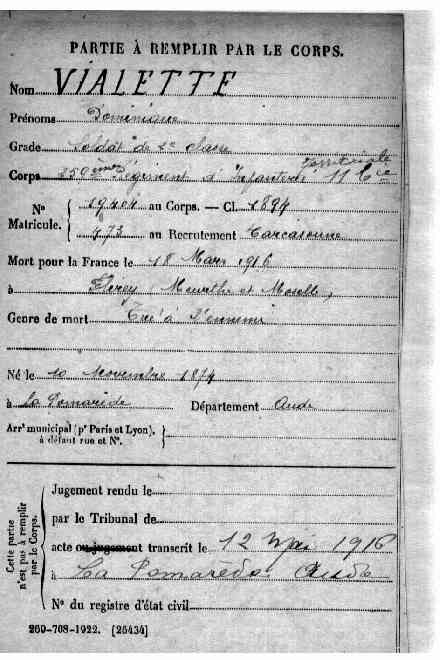 PARTIE À REMPLIR PAR LE CORPS.
Nom VIALETTE
Prénoms Dominique
Grade Soldat de 2e Classe
territoriale
Corps 259ème Régiment d'Infanterie 11 Cie
N° 19404 au Corps. — Cl. 1894
Matricule. 473 au Recrutement Carcasonne
Mort pour la France le 18 Mars 1916
à Flirey, Meurthe et Moselle,
Genre de mort Tué à l'ennemi
Né le 10 Novembre 1874
à La Pomarède Département Aude
Arrt municipal (pr Paris et Lyon),
à défaut rue et N°.
Cette partie n'est pas à remplir par le Corps.
Jugement rendu le
par le Tribunal de
acte ou jugement transcrit le 12 Mai 1916
à La Pomarède Aude
N° du registre d'état civil
269-708-1922. [26434]